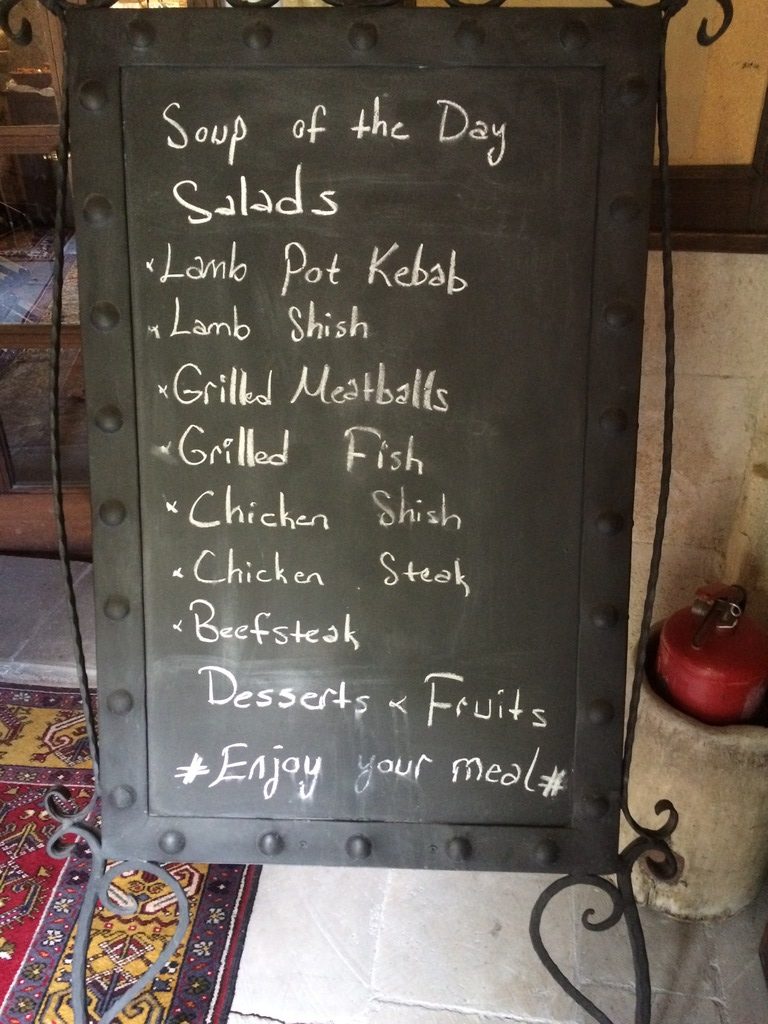 Soup of the Day
Salads
x Lamb Pot Kebab
x Lamb Shish
x Grilled Meatballs
x Grilled Fish
x Chicken Shish
x Chicken Steak
x Beefsteak
Desserts x Fruits
# Enjoy your meal #